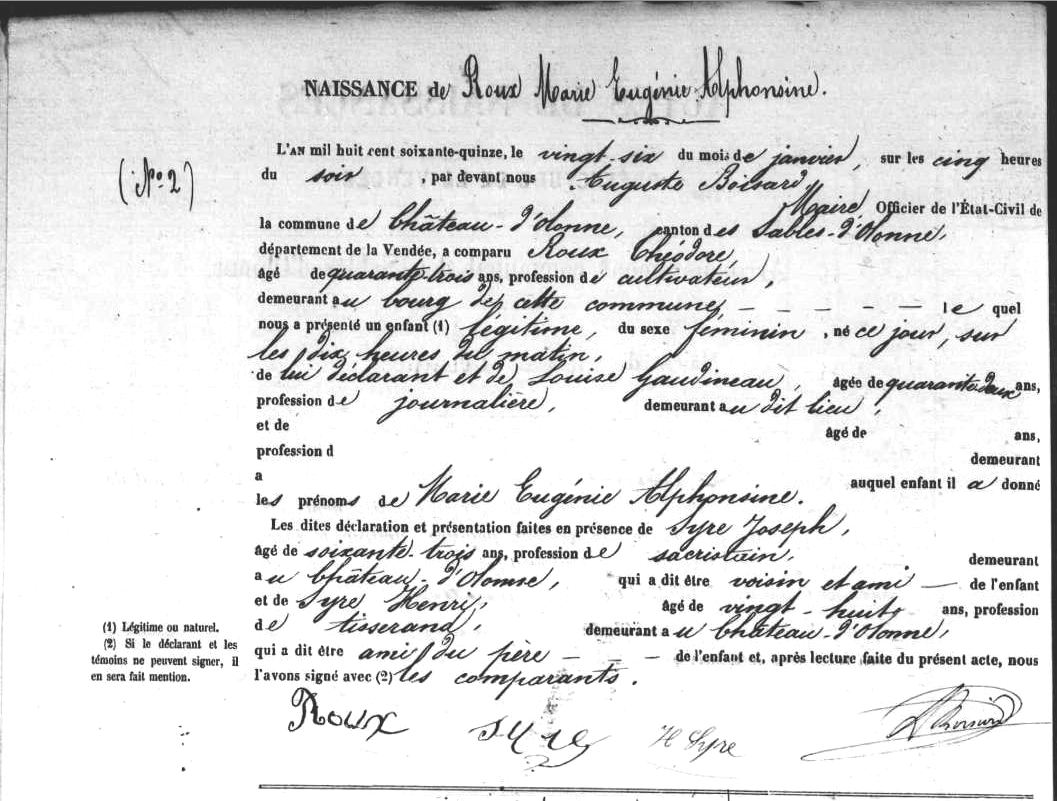 NAISSANCE de Roux Marie Eugénie Alphonsine.
(No. 2)
L'AN mil huit cent soixante-quinze, le vingt-six du mois de janvier, sur les cinq heures
du soir, par devant nous Auguste Boisard,
Maire, Officier de l'État-Civil de
la commune de Château-d'Olonne, canton des Sables-d'Olonne,
département de la Vendée, a comparu Roux Théodore,
âgé de quarante-trois ans, profession de cultivateur,
demeurant au bourg de cette commune, - - - - - lequel
nous a présenté un enfant (1) légitime, du sexe féminin, né ce jour, sur
les dix heures du matin,
de lui déclarant et de Louise Gaudineau, âgée de quarante-deux ans,
profession de journalière, demeurant au dit lieu,
et de âgé de ans,
profession d demeurant
a auquel enfant il a donné
les prénoms de Marie Eugénie Alphonsine.
Les dites déclaration et présentation faites en présence de Syre Joseph,
âgé de soixante-trois ans, profession de sacristain, demeurant
au Château-d'Olonne, qui a dit être voisin et ami — de l'enfant
et de Syre Henry, âgé de vingt-huit ans, profession
de tisserand, demeurant au Château-d'Olonne,
qui a dit être ami du père - - - de l'enfant et, après lecture faite du présent acte, nous
l'avons signé avec (2) les comparants.
(1) Légitime ou naturel.
(2) Si le déclarant et les
témoins ne peuvent signer, il
en sera fait mention.
Roux Syre H Syre ABoisard